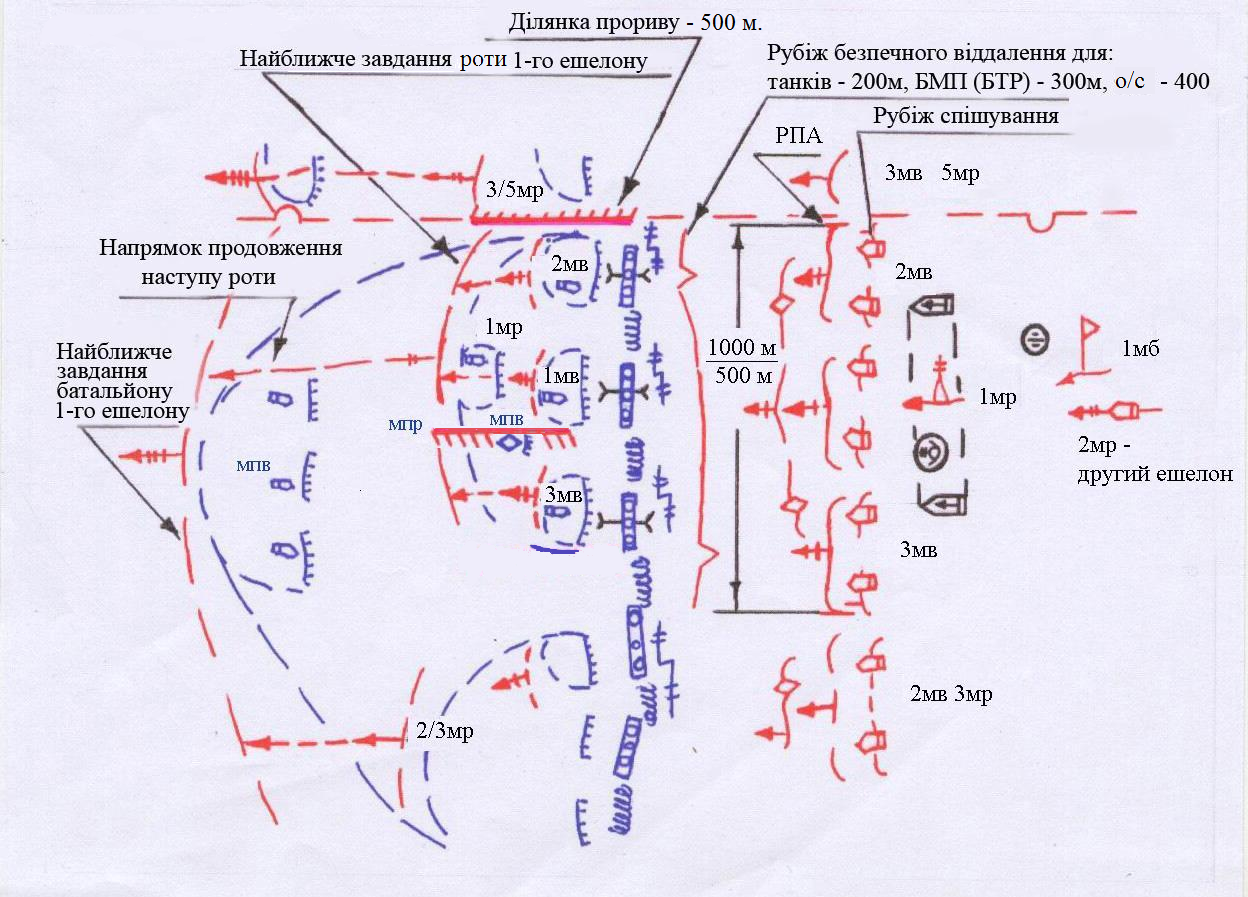 Ділянка прориву - 500 м.
Найближче завдання роти 1-го ешелону
Рубіж безпечного віддалення для:
танків - 200м, БМП (БТР) - 300м, о/с - 400
Рубіж спішування
РПА
3мв 5мр
3/5мр
Напрямок продовження
наступу роти
2мв
2мв
1мр
1000 м
500 м
1мб
Найближче
завдання
батальйону
1-го ешелону
1мв
1мр
мпр
мпв
2мр -
другий ешелон
мпв
3мв
3мв
2мв 3мр
2/3мр